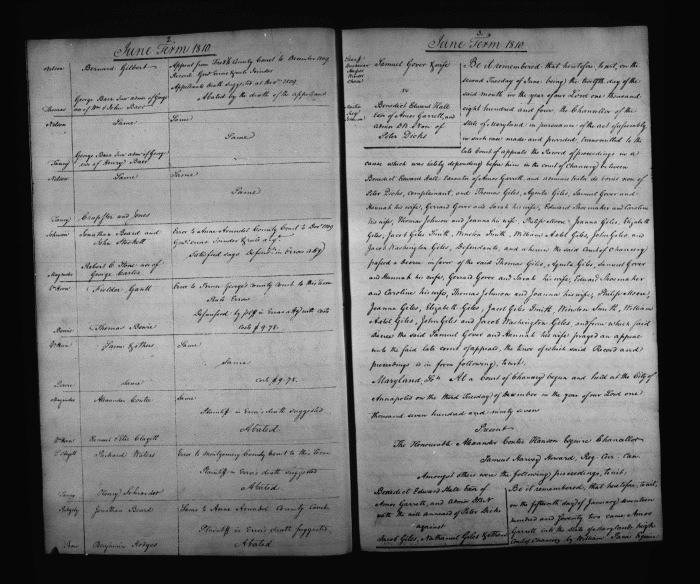 2.
June Term 1810
Nelson
Bernard Gilbert
Appeal from County Court to December 1809
Appellants death suggested at Nov. 1809.
Abated by the death of the appellant
Thomas
George Baer Jun adm. of George
Nelson
Same
Same
Same
Taney
George Baer Jun adm. of George
Baer
Nelson
Same
Same
Same
Taney
Clapsttle and Jones
Johnson
Jonathan Beard and
John Stockett
Error to Anne Arundel County Court to Decr 1809
Magruder
George
Fielder Gantt
Error to Prince George's County Court to this term
Costs $9.78.
Morris
Thomas Bowie
Same & others
Same
Same
same
costs $9.78.
Magruder
Alexander Contee
Same
Plaintiff in Error's death suggested
Abated.
Clagett
Richard Waters
Error to Montgomery County Court to this Term
Plaintiff in Error's death suggested
Abated
Taney
Henry Schnerdet
Ridgely
Jonathan Beard
Same to Anne Arundel County Court
Plaintiff in Error's death suggested,
Abated
Benjamin Hodges
3.
June Term 1810
Samuel Gover & wife
vs
Benedict Edward Hall
Exr of Amos Garrett, and
admr D.B. N of
Peter Dicks
Johnson
Be it remembered, that heretofore, to wit, on the
second Tuesday of June being the twelfth day of the
said month in the year of our Lord one thousand
eight hundred and four, the Chancellor of the
State of Maryland in pursuance of the act of assembly
in such case made and provided, transmitted to the
late Court of appeals the Record of proceedings in a
cause which was lately depending before him in the court of Chancery between
Benedict Edward Hall Executor of Amos Garrett, and administrator de bonis non of
Peter Dicks, complainant, and Thomas Giles, Aquila Giles, Samuel Gover and
Hannah his wife, Gerard Gover and Sarah his wife, Edward Shoemaker and Caroline
his wife, Thomas Johnson and Joanna his wife, Philip Moore, Joanna Giles, Elizabeth
Giles, Jacob Giles Smith, Winston Smith, William Axtel Giles, John Giles, and
Jacob Washington Giles, Defendants, and wherein the said Court of Chancery
passed a decree in favor of the said Thomas Giles, Aquila Giles, Samuel Gover
and Hannah his wife, Gerard Gover and Sarah his wife, Edward Shoemaker
and Caroline his wife, Thomas Johnson and Joanna his wife, Philip Moore,
Joanna Giles, Elizabeth Giles, Jacob Giles Smith, Winston Smith, William
Axtel Giles, John Giles and Jacob Washington Giles, and from which said
decree the said Samuel Gover and Hannah his wife prayed an appeal
unto the said late court of appeals, the tenor of which said Record and
proceedings is in form following, to wit,
Maryland, At a Court of Chancery begun and held at the City of
Annapolis on the third Tuesday of December in the year of our Lord one
thousand seven hundred and ninety seven
Present
The Honourable Alexander Contee Hanson Esquire Chancellor
Samuel Harvey Howard, Reg. Cur. Can.
Amongst others were the following proceedings, to wit;
Benedict Edward Hall Exr of
Amos Garrett, and admr DBN
with the will annexed of Peter Dicks
against
Jacob Giles, Nathaniel Giles & others
Be it remembered, that heretofore, to wit,
on the fifteenth day of January seventeen
hundred and seventy two came Amos
Garrett into the State of Maryland's high
Court of Chancery by William Paca Esquire